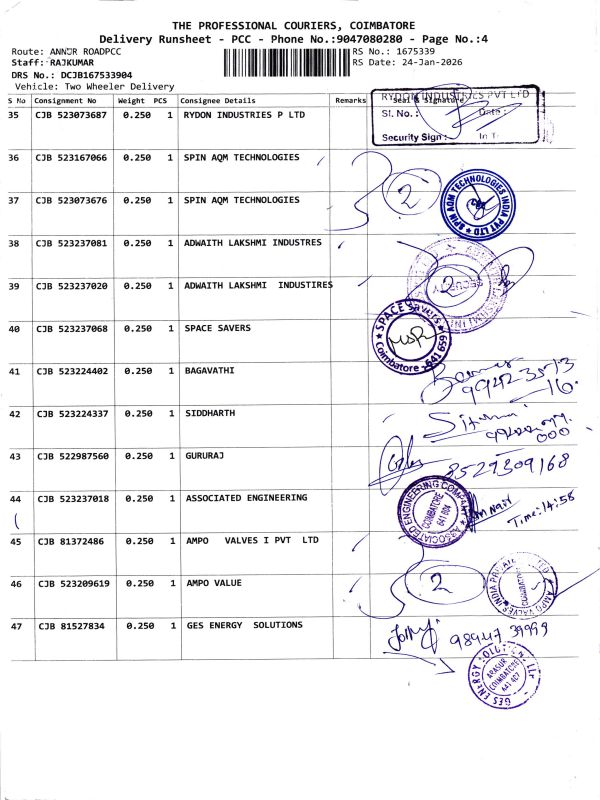 THE PROFESSIONAL COURIERS, COIMBATORE
Delivery Runsheet - PCC - Phone No.:9047080280 - Page No.:4
Route: ANNUR ROADPCC
RS No.: 1675339
Staff: RAJKUMAR
RS Date: 24-Jan-2026
DRS No.: DCJB167533904
Vehicle: Two Wheeler Delivery
S No Consignment No Weight PCS Consignee Details Remarks Seal & Signature
35 CJB 523073687 0.250 1 RYDON INDUSTRIES P LTD
RYDON INDUSTRIES PVT LTD
Sl. No.: Date:
Security Sign: In T
36 CJB 523167066 0.250 1 SPIN AQM TECHNOLOGIES
2
37 CJB 523073676 0.250 1 SPIN AQM TECHNOLOGIES
SPIN AQM TECHNOLOGIES INDIA PVT LTD
38 CJB 523237081 0.250 1 ADWAITH LAKSHMI INDUSTRES
2
SECURITY
39 CJB 523237020 0.250 1 ADWAITH LAKSHMI INDUSTIRES
40 CJB 523237068 0.250 1 SPACE SAVERS
SPACE Savers
Coimbatore - 641 659
41 CJB 523224402 0.250 1 BAGAVATHI
42 CJB 523224337 0.250 1 SIDDHARTH
43 CJB 522987560 0.250 1 GURURAJ
8527309168
44 CJB 523237018 0.250 1 ASSOCIATED ENGINEERING
ASSOCIATED ENGINEERING COMPANY
COIMBATORE
641 604
Time: 14:58
45 CJB 81372486 0.250 1 AMPO VALVES I PVT LTD
46 CJB 523209619 0.250 1 AMPO VALUE
2
AMPO VALVES INDIA PRIVATE LTD
COIMBATORE
47 CJB 81527834 0.250 1 GES ENERGY SOLUTIONS
98947 39999
GES ENERGY SOLUTIONS LLP
ARASUR
COIMBATORE
641 407